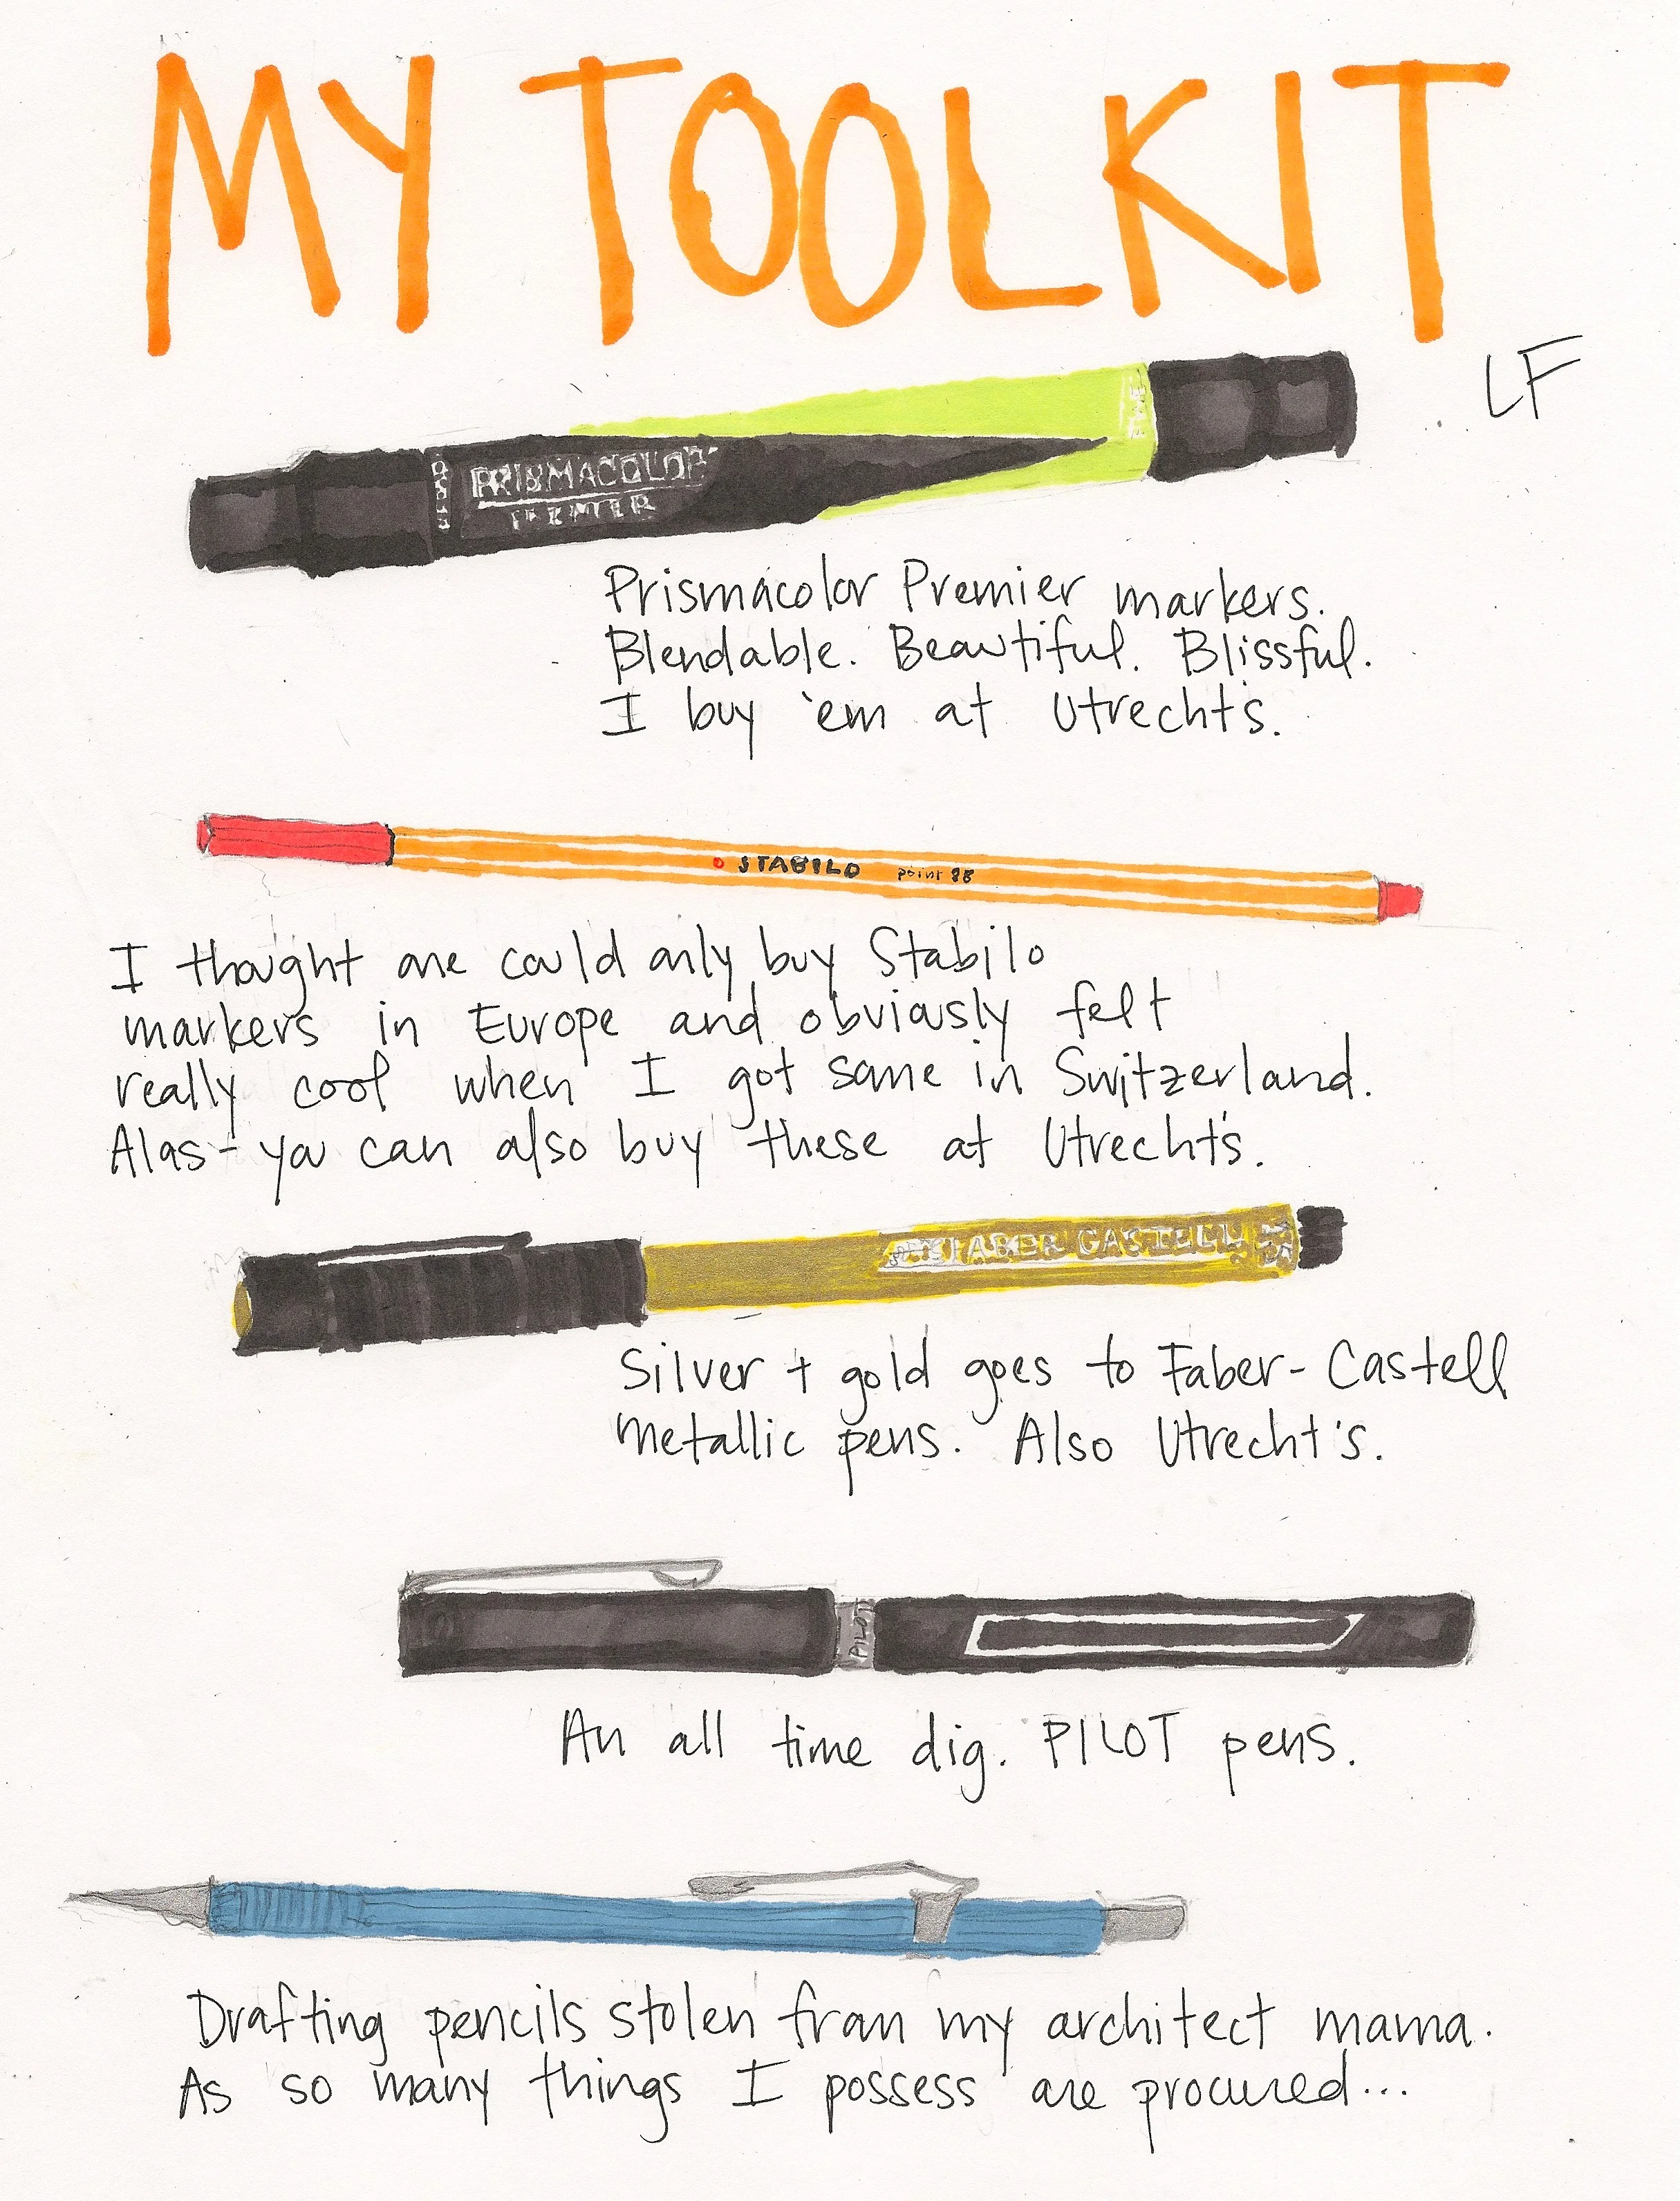 MY TOOLKIT
LF
PRISMACOLOR
PREMIER
Prismacolor Premier markers.
Blendable. Beautiful. Blissful.
I buy 'em at Utrecht's.
STABILO point 88
I thought one could only buy Stabilo
markers in Europe and obviously felt
really cool when I got some in Switzerland.
Alas - you can also buy these at Utrecht's.
FABER CASTELL
Silver + gold goes to Faber-Castell
Metallic pens. Also Utrecht's.
PILOT
An all time dig. PILOT pens.
Drafting pencils stolen from my architect mama.
As so many things I possess are procured...